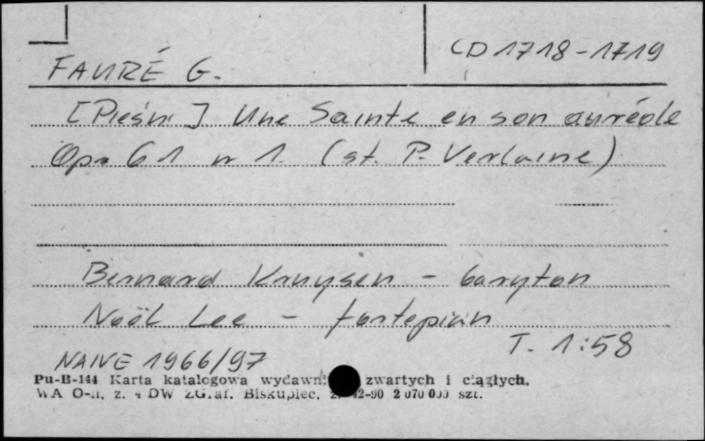 CD 1718-1719
FAURÉ G.
[Pieśni] Une Sainte en son auréole
Op. 61 nr 1. (sł. P. Verlaine)
Bernard Kruysen - baryton
Noël Lee - fortepian
T. 1:58
NAIVE 1966/97
Pu-B-144 Karta katalogowa wydawn zwartych i ciągłych.
WA O-n, z. DW Z.Graf. Biskupiec, 2 070 000 szt.